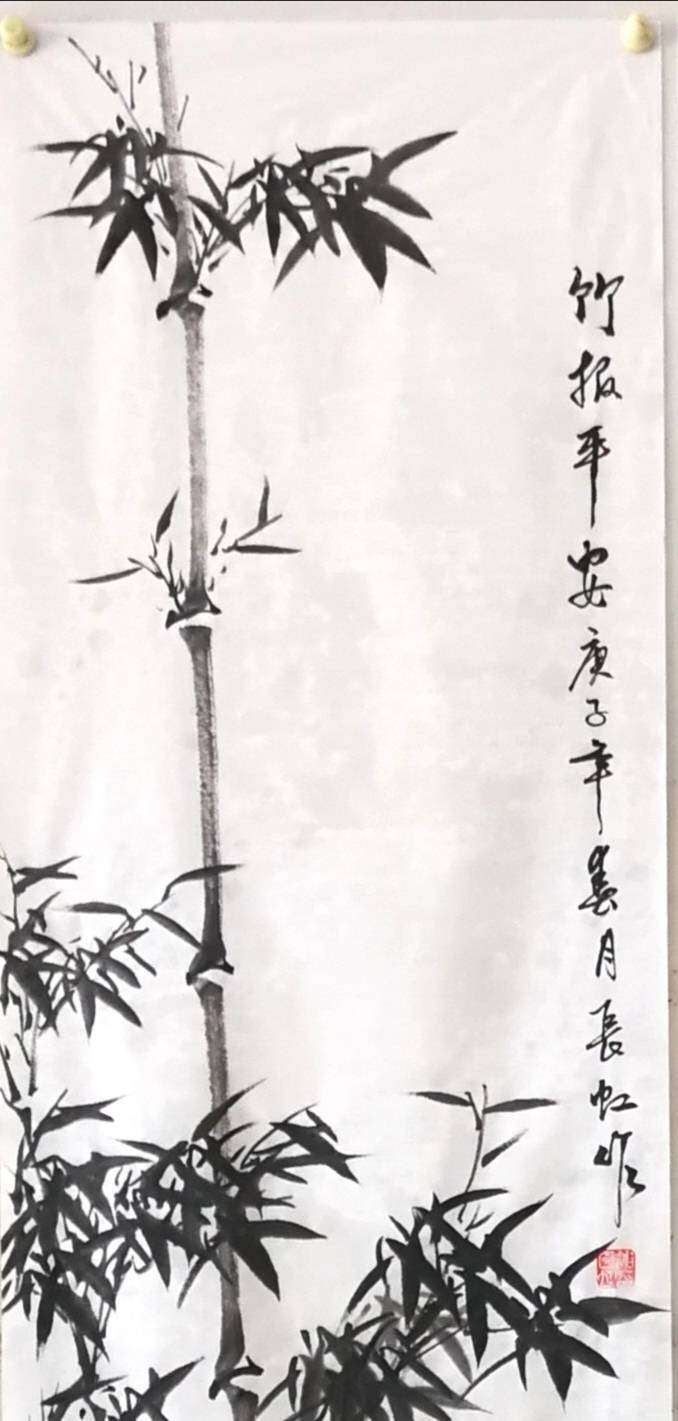 竹报平安庚子年春月長虹作